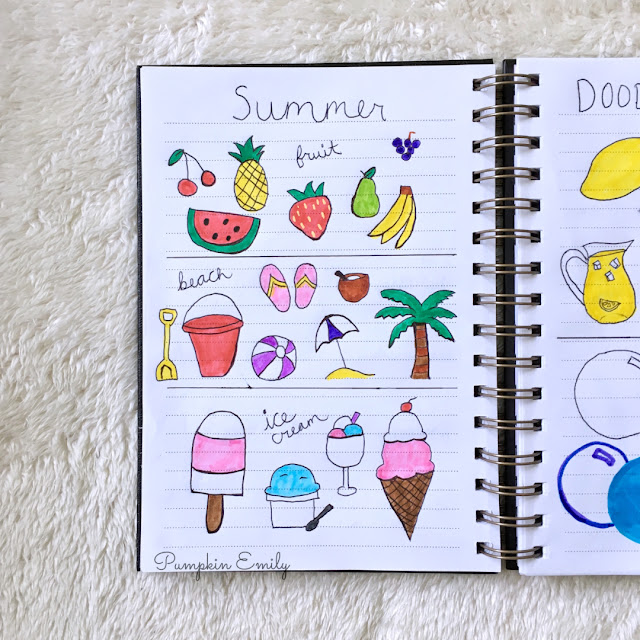 Summer
fruit
beach
ice
cream
Pumpkin Emily
DOOD